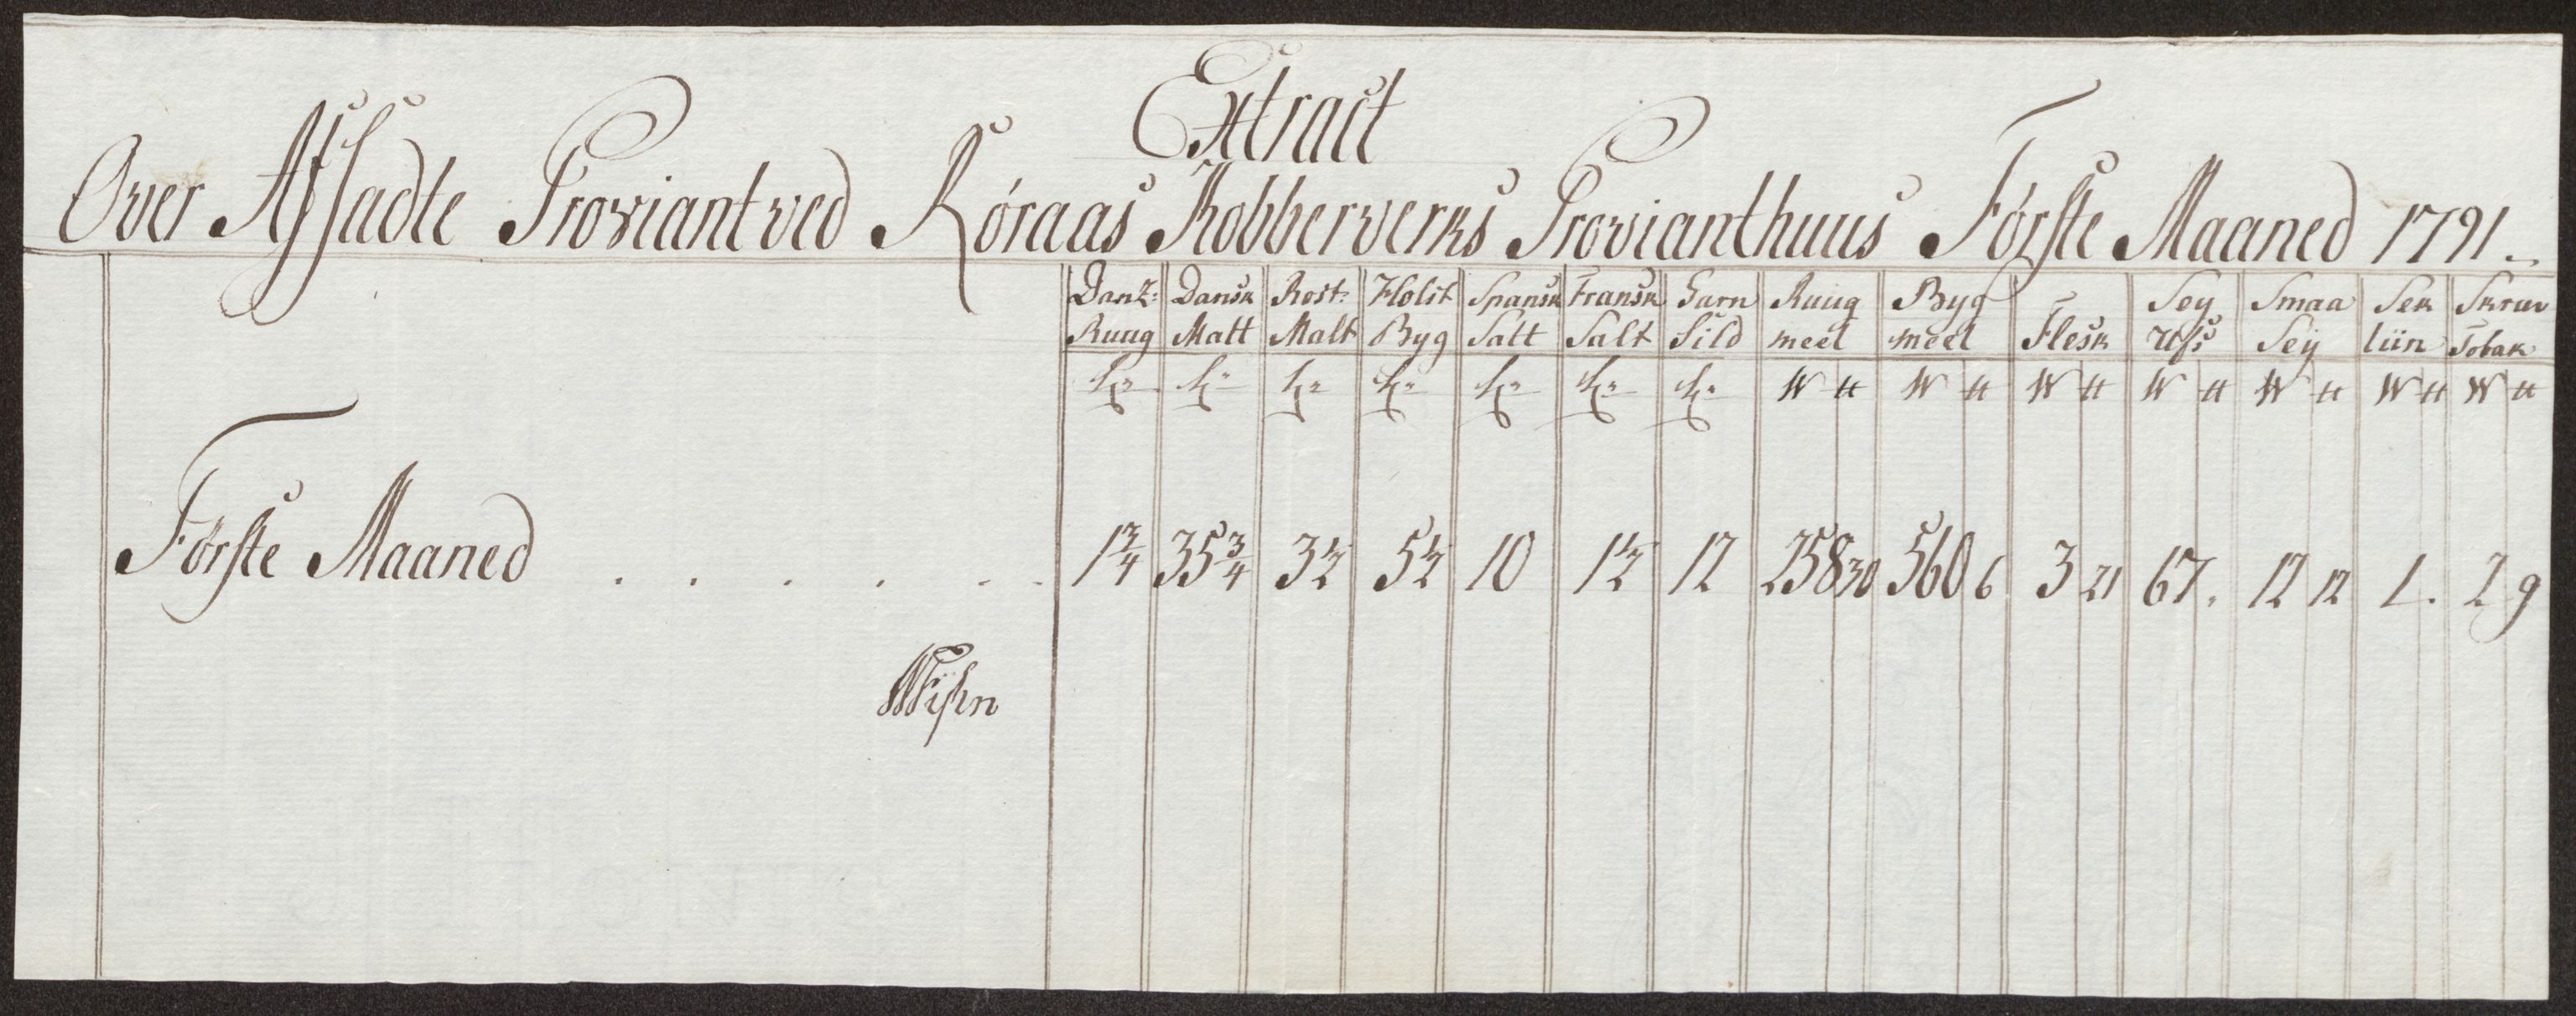 Extract
Over Afsadte Proviant ved Röraas Kobberverks Provianthuus Förste Maaned 1791.
Danz: Ruug Dansk Malt Rost: Malt Holst Byg Spansk Salt Fransk Salt Garn Sild Ruug meel Byg meel Flesk Sey Ufs Smaa Sey Sek liin Skruv Tobak
W ℔ W ℔ W ℔ W ℔ W ℔ W ℔ W ℔
Förste Maaned . . . . . . 1¾ 35¾ 3½ 5½ 10 1½ 12 258 30 560 6 3 21 67 . 12 12 1 . 2 9